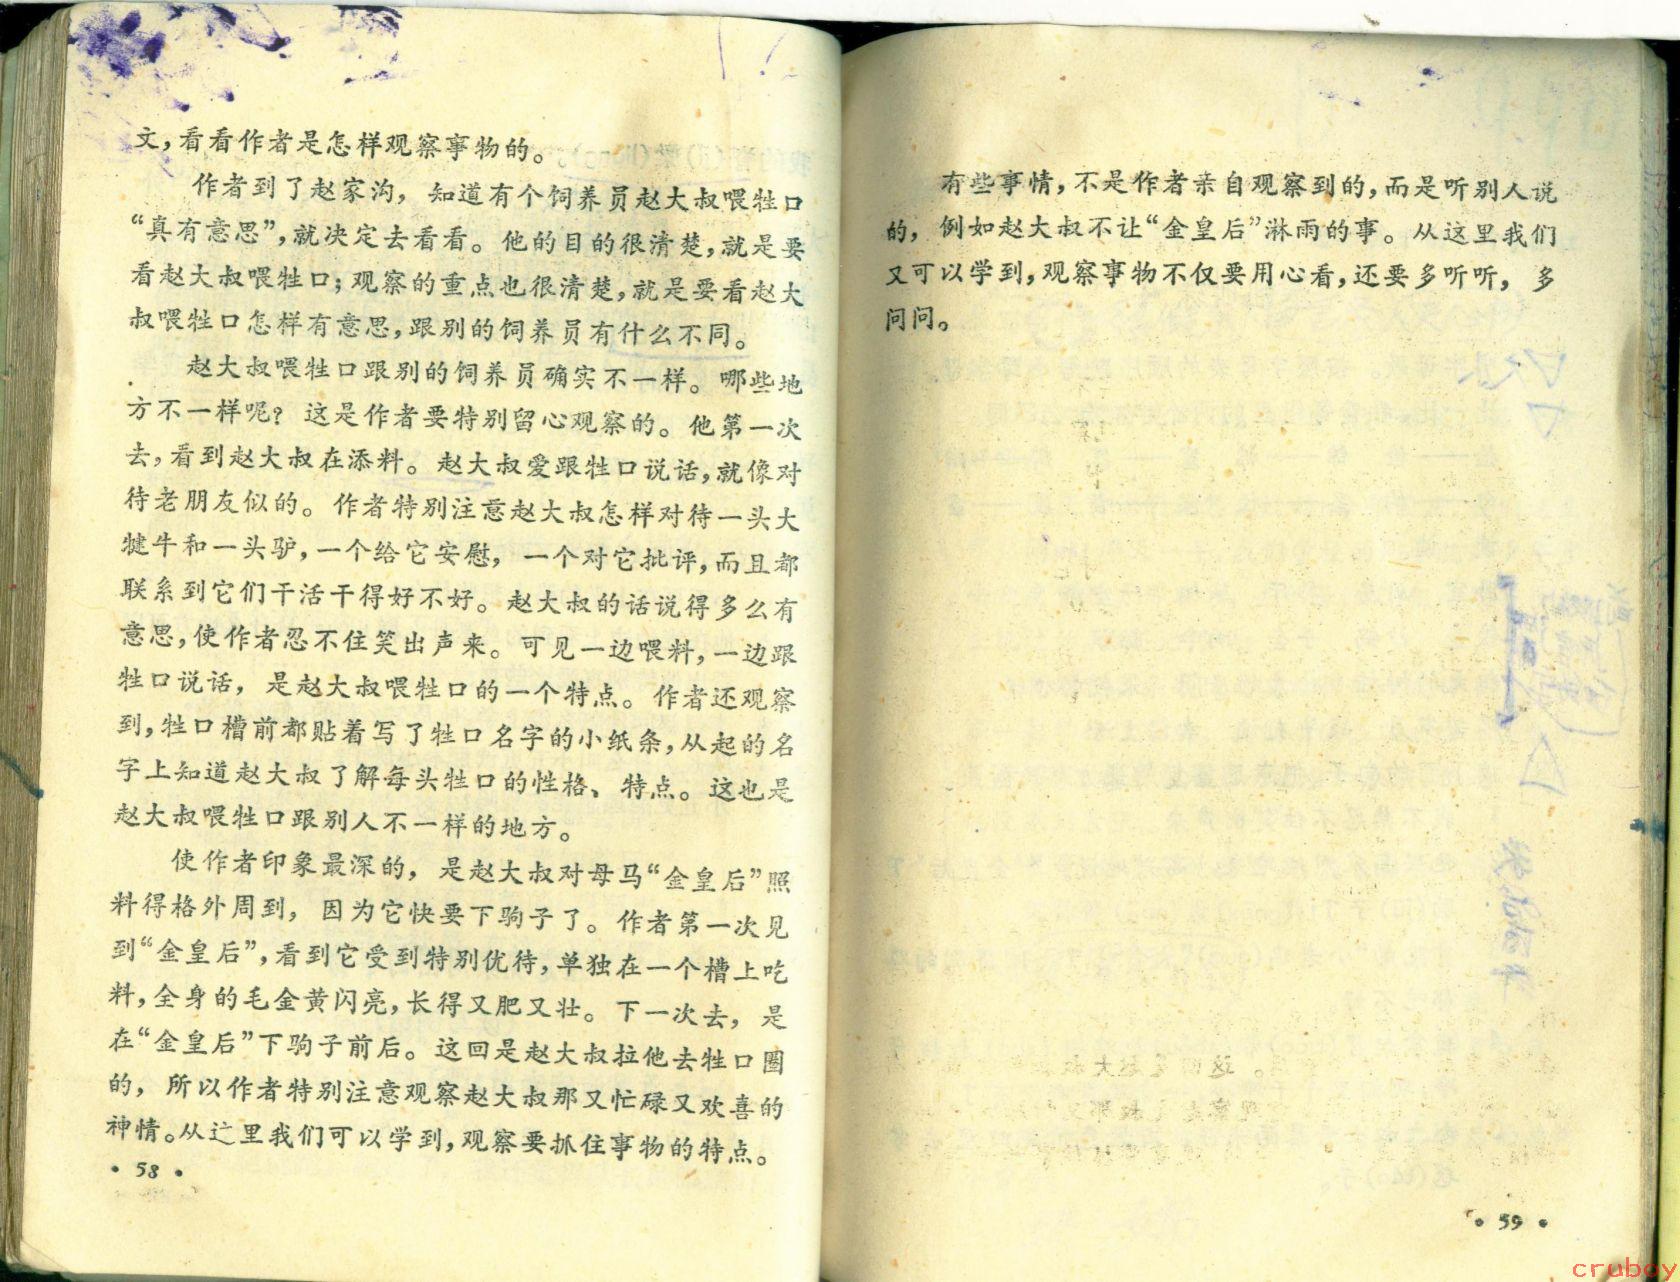 文，看看作者是怎样观察事物的。
作者到了赵家沟，知道有个饲养员赵大叔喂牲口
“真有意思”，就决定去看看。他的目的很清楚，就是要
看赵大叔喂牲口；观察的重点也很清楚，就是要看赵大
叔喂牲口怎样有意思，跟别的饲养员有什么不同。
赵大叔喂牲口跟别的饲养员确实不一样。哪些地
方不一样呢？这是作者要特别留心观察的。他第一次
去，看到赵大叔在添料。赵大叔爱跟牲口说话，就像对
待老朋友似的。作者特别注意赵大叔怎样对待一头大
犍牛和一头驴，一个给它安慰，一个对它批评，而且都
联系到它们干活干得好不好。赵大叔的话说得多么有
意思，使作者忍不住笑出声来。可见一边喂料，一边跟
牲口说话，是赵大叔喂牲口的一个特点。作者还观察
到，牲口槽前都贴着写了牲口名字的小纸条，从起的名
字上知道赵大叔了解每头牲口的性格、特点。这也是
赵大叔喂牲口跟别人不一样的地方。
使作者印象最深的，是赵大叔对母马“金皇后”照
料得格外周到，因为它快要下驹子了。作者第一次见
到“金皇后”，看到它受到特别优待，单独在一个槽上吃
料，全身的毛金黄闪亮，长得又肥又壮。下一次去，是
在“金皇后”下驹子前后。这回是赵大叔拉他去牲口圈
的，所以作者特别注意观察赵大叔那又忙碌又欢喜的
神情。从这里我们可以学到，观察要抓住事物的特点。
• 58 •
有些事情，不是作者亲自观察到的，而是听别人说
的，例如赵大叔不让“金皇后”淋雨的事。从这里我们
又可以学到，观察事物不仅要用心看，还要多听听，多
问问。
• 59 •
cruboy